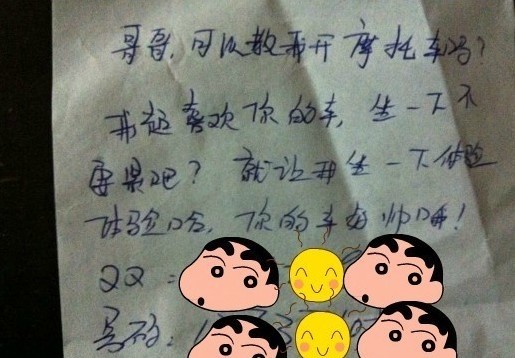 哥哥，可以教我开摩托车吗？
我超喜欢你的车，坐一下不
要紧吧？就让我坐一下体验
体验哈，你的车好帅呀！
QQ：
号码：